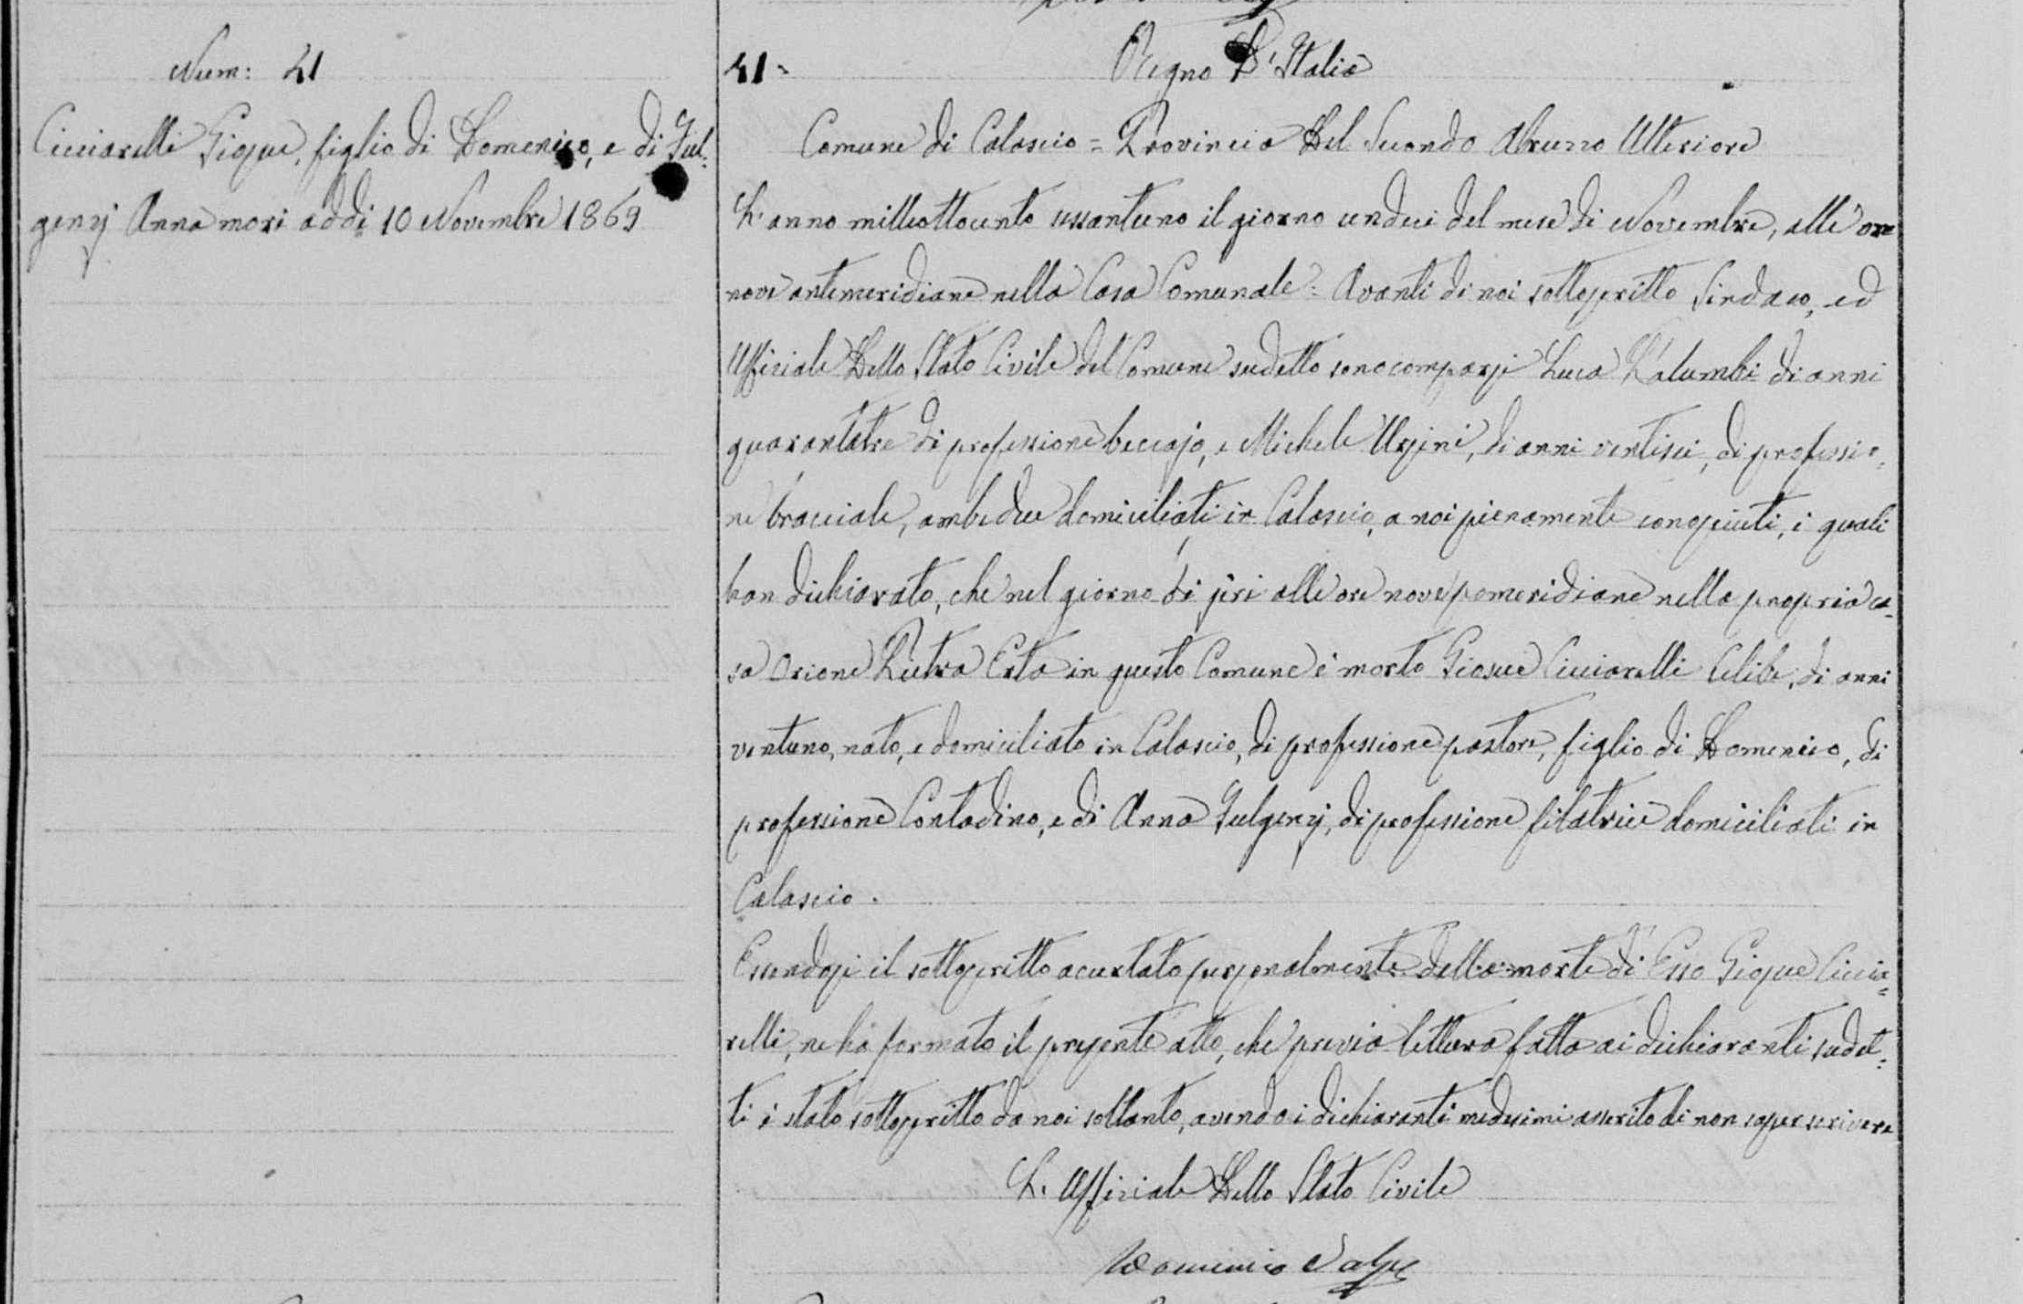 Num: 41
Cicciarelli Giosue, figlio di Domenico, e di Ful-
genzj Anna morì addì 10 Novembre 1869
41-
Regno D'Italia
Comune di Calascio = Provincia Del Secondo Abruzzo Ulteriore
L'anno milleottocento sessantuno il giorno undeci del mese di Novembre, alle ore
nove antemeridiane nella Casa Comunale: Avanti di noi sottoscritto Sindaco, ed
Uffiziale Dello Stato Civile del Comune sudetto sono comparsi Luca Palumbi di anni
quarantatre di professione beccajo, e Michele Ursini, di anni ventisei, di professio-
ne bracciale, ambedue domiciliati in Calascio, a noi pienamente conosciuti, i quali
han dichiarato, che nel giorno di jeri alle ore nove pomeridiane nella propria ca-
sa Orione Pietra Erta in questo Comune è morto Giosue Cicciarelli Celibe, di anni
ventuno, nato, e domiciliato in Calascio, di professione pastore, figlio di Domenico, di
professione Contadino, e di Anna Fulgenzj, di professione filatrice domiciliati in
Calascio.
Essendosi il sottoscritto accertato personalmente della morte di Esso Giosue Ciccia-
relli, ne ha formato il presente atto, che previa lettura fatta ai dichiaranti sudet-
ti è stato sottoscritto da noi soltanto, avendo i dichiaranti medesimi asserito di non saper scrivere
L'Uffiziale Dello Stato Civile
Domenico